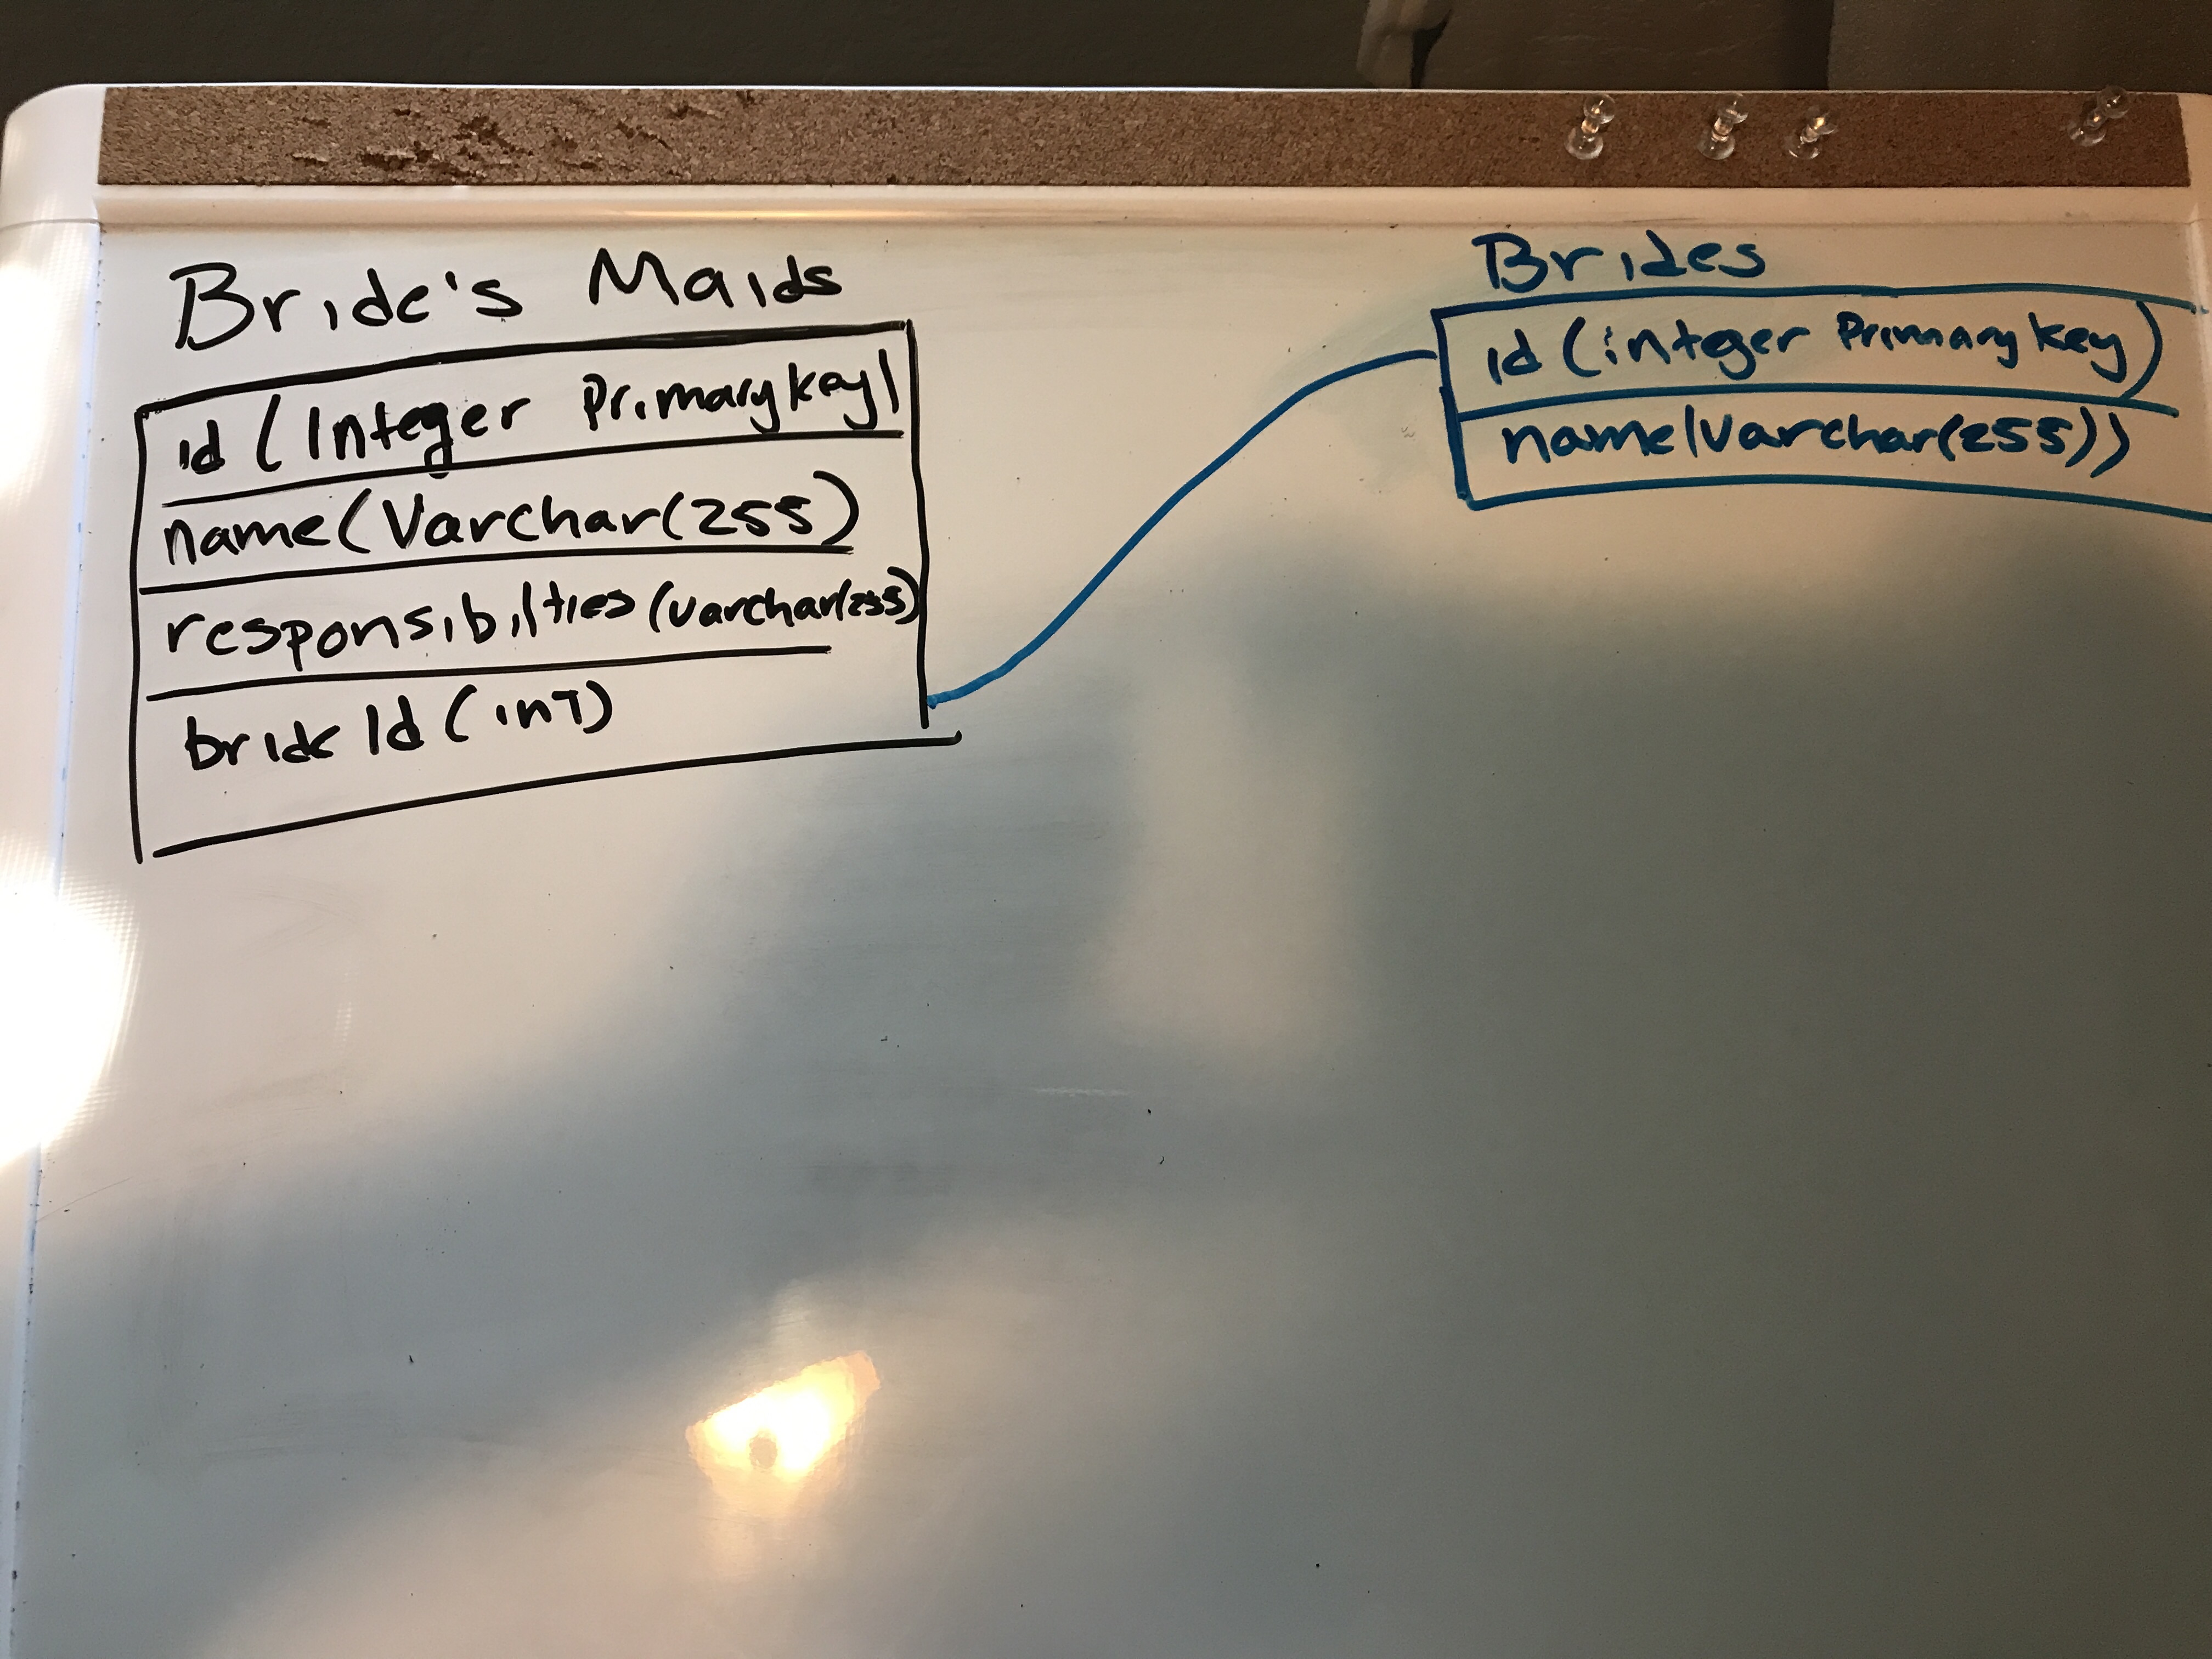 Bride's Maids
id (Integer Primary key)
name (Varchar(255)
responsibilties (varchar(255)
bride Id (inT)
Brides
id (integer Primary key)
name (Varchar(255))